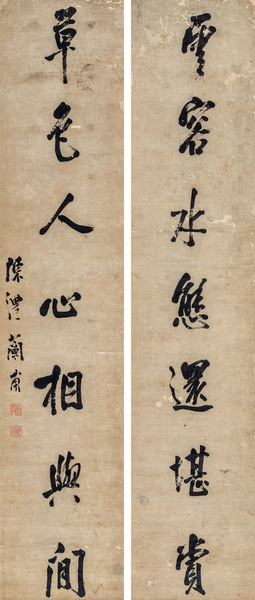 雲容水態還堪賞
草色人心相與閒
陳澧蘭甫